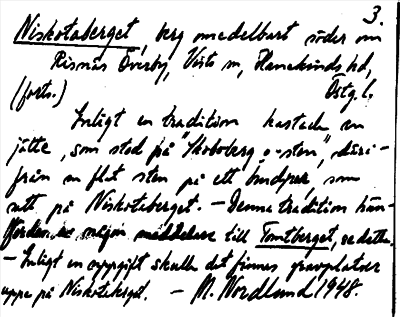 3.
Niskotaberget, berg omedelbart söder om
Risnäs Överby, Västo sn, Hanekinds hd,
(forts.) Östg. l.
Enligt en tradition kastade en
jätte, som stod på "Skoboberg o-sten", däri-
från en flat sten på ett, som
satt på Niskotaberget. – Denna tradition hän-
till Tomtberget, se detta.
– Enligt en uppgift skulle det finnas gravplatser
uppe på Niskotaberget. – M. Nordlund 1948.